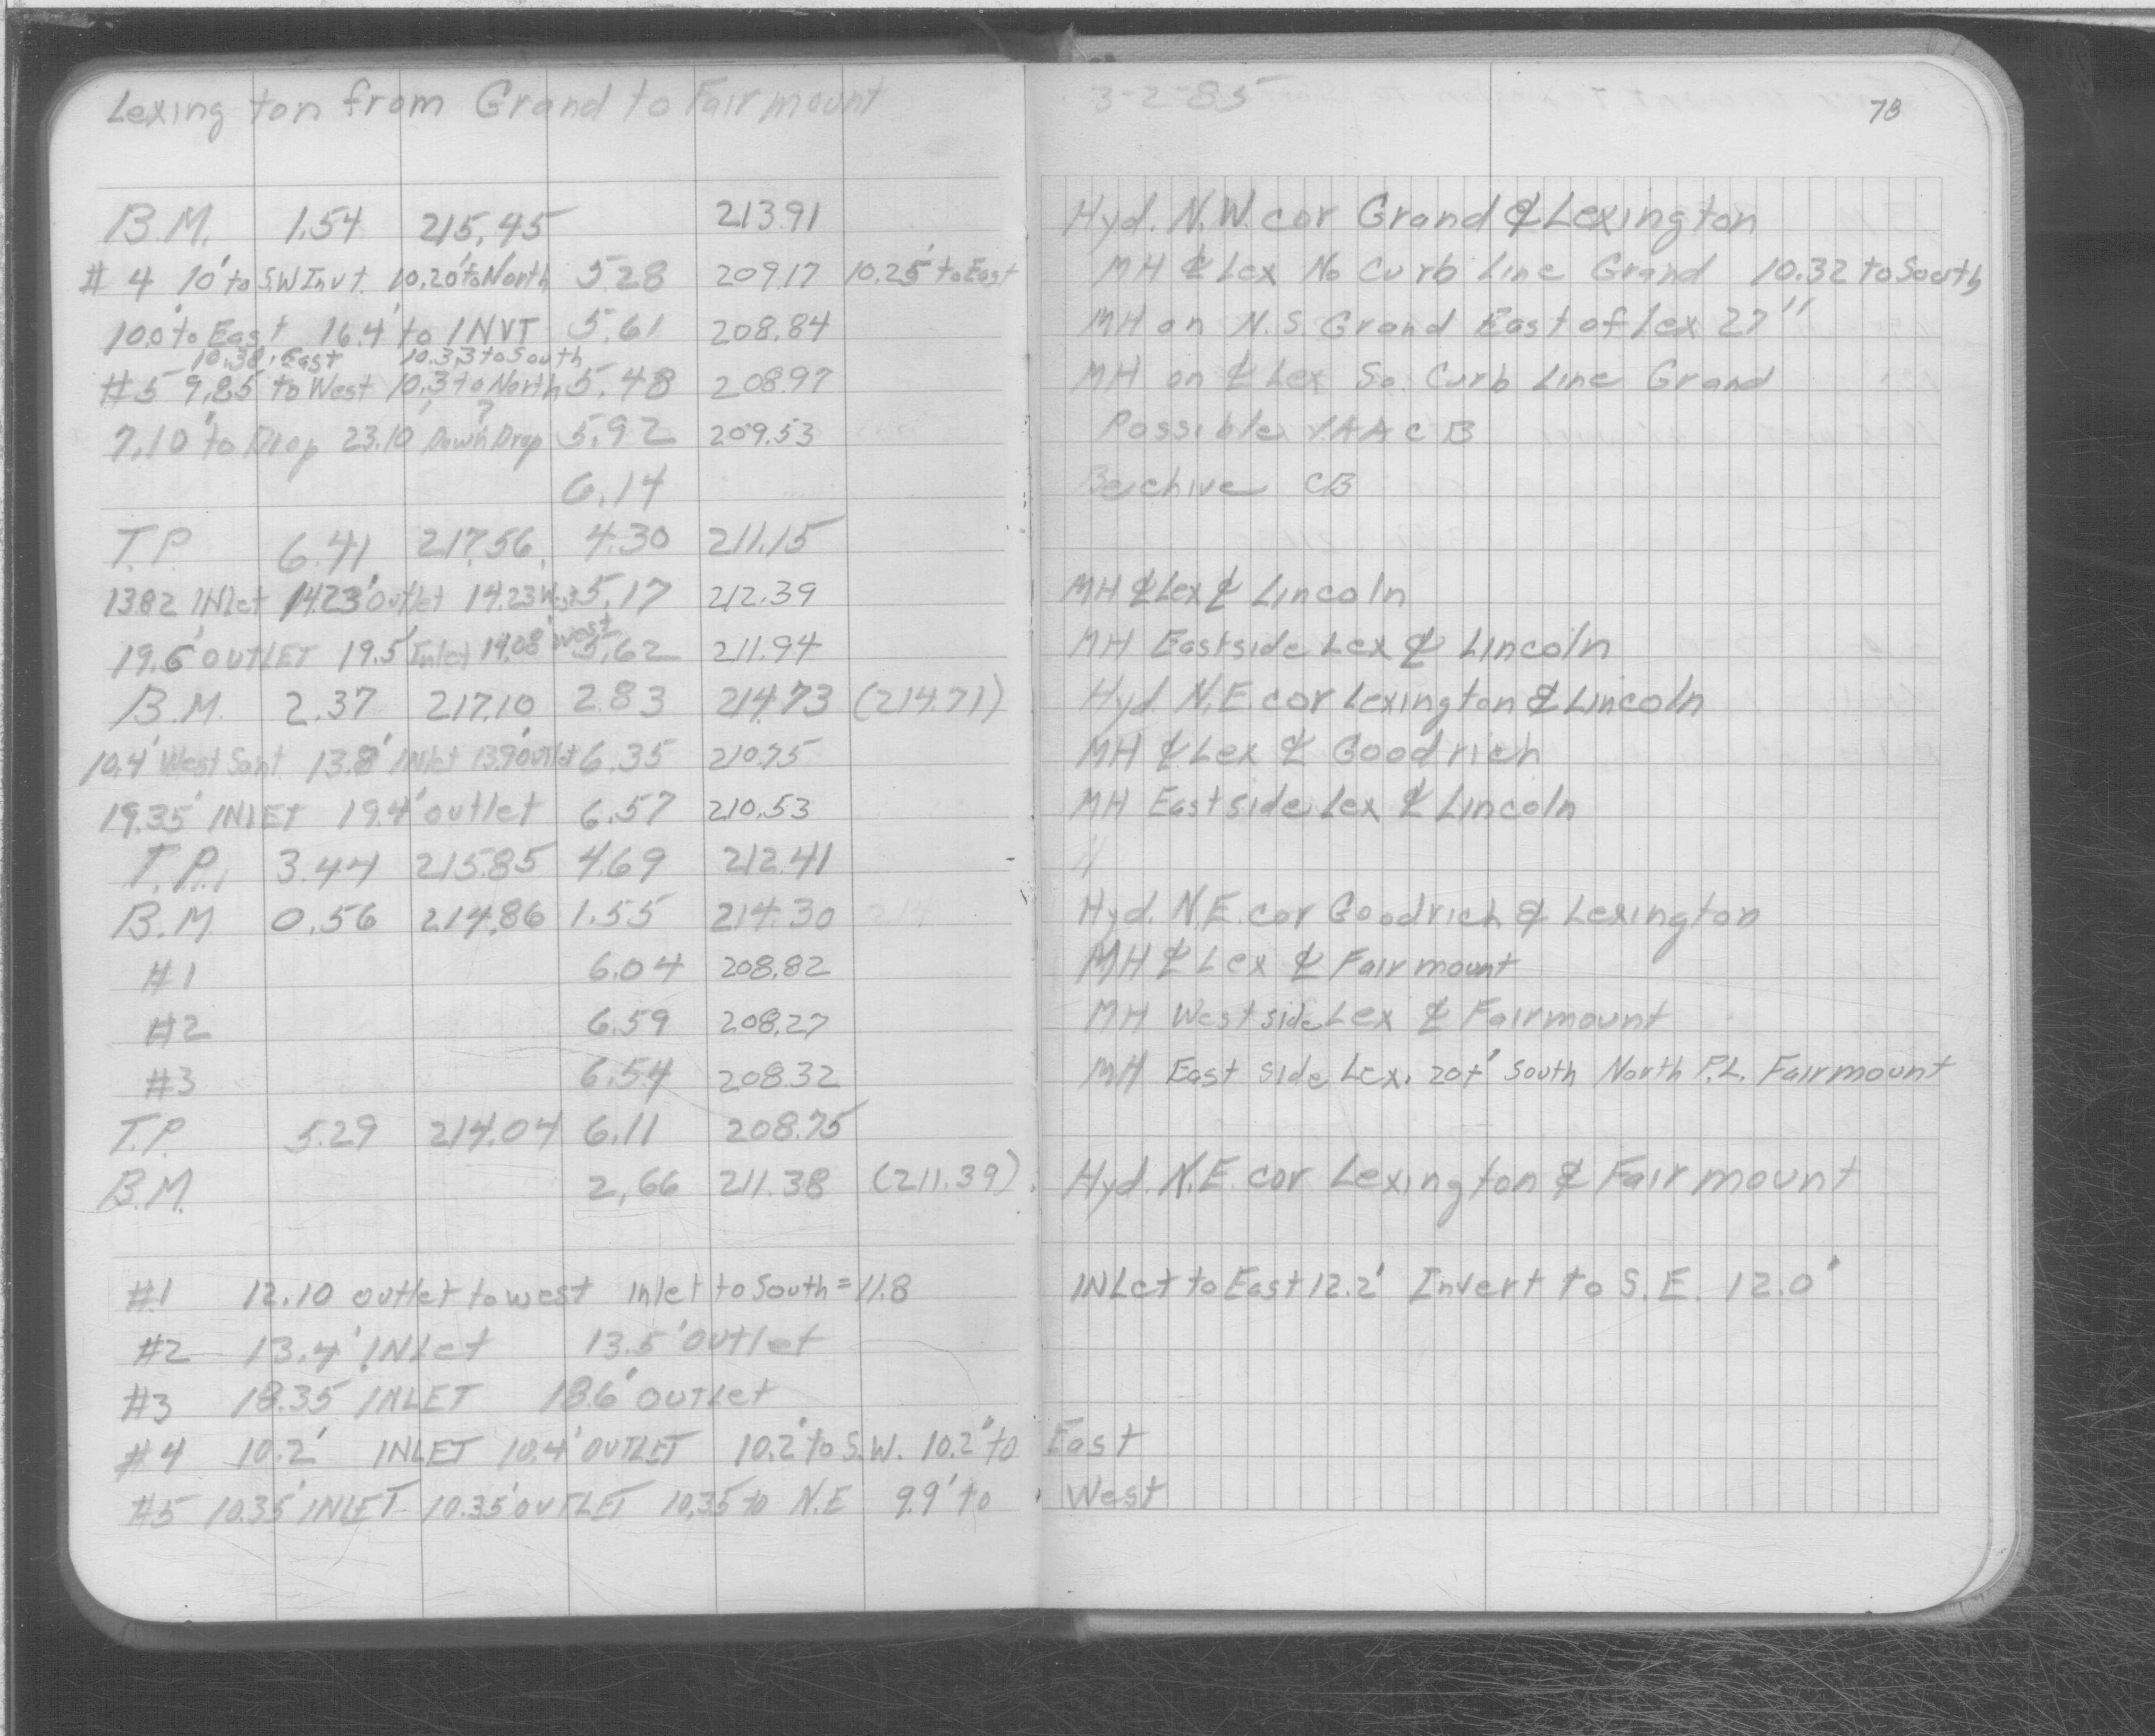 Lexington from Grand to Fairmount 3-2-85 78
B.M. 1.54 215.45 213.91 Hyd. N.W. cor Grand & Lexington
#4 10' to S.W Invt. 10.20' to North 5.28 209.17 10.25' to East MH ₵ Lex No Curb Line Grand 10.32 to South
10.0' to East 16.4' to INVT 5.61 208.84 MH on N.S. Grand East of Lex 27"
10.38' East 10.33 to South
#5 9.85 to West 10.3 to North 5.48 208.97 MH on ₵ Lex So. Curb Line Grand
7.10' to Drop 23.10' Down Drop ? 5.92 209.53 Possible CB
6.14 Beehive CB
T.P. 6.41 217.56 4.30 211.15
13.82 INlet 14.23' Outlet 14.23 West 5.17 212.39 MH ₵ Lex ₵ Lincoln
19.6' OUTLET 19.5' Inlet 19.08' West 5.62 211.94 MH Eastside Lex ₵ Lincoln
B.M. 2.37 217.10 2.83 214.73 (214.71) Hyd N.E. cor Lexington & Lincoln
10.4' West Sant 13.8' INlet 13.9' Outlet 6.35 210.75 MH ₵ Lex ₵ Goodrich
19.35' INLET 19.4' outlet 6.57 210.53 MH East side Lex ₵ Lincoln
T.P. 3.44 215.85 4.69 212.41
B.M. 0.56 214.86 1.55 214.30 Hyd. N.E. cor Goodrich & Lexington
#1 6.04 208.82 MH ₵ Lex ₵ Fairmount
#2 6.59 208.27 MH West side Lex ₵ Fairmount
#3 6.54 208.32 MH East side Lex. 20±' South North P.L. Fairmount
T.P. 5.29 214.04 6.11 208.75
B.M. 2.66 211.38 (211.39) Hyd. N.E. cor Lexington & Fairmount
#1 12.10 outlet to west Inlet to South = 11.8 INLet to East 12.2' Invert to S.E. 12.0'
#2 13.4' INLet 13.5' Outlet
#3 18.35' INLET 18.6' OUTLet
#4 10.2' INLET 10.4' OUTLET 10.2' to S.W. 10.2' to East
#5 10.35' INLET 10.35' OUTLET 10.35 to N.E 9.9' to West